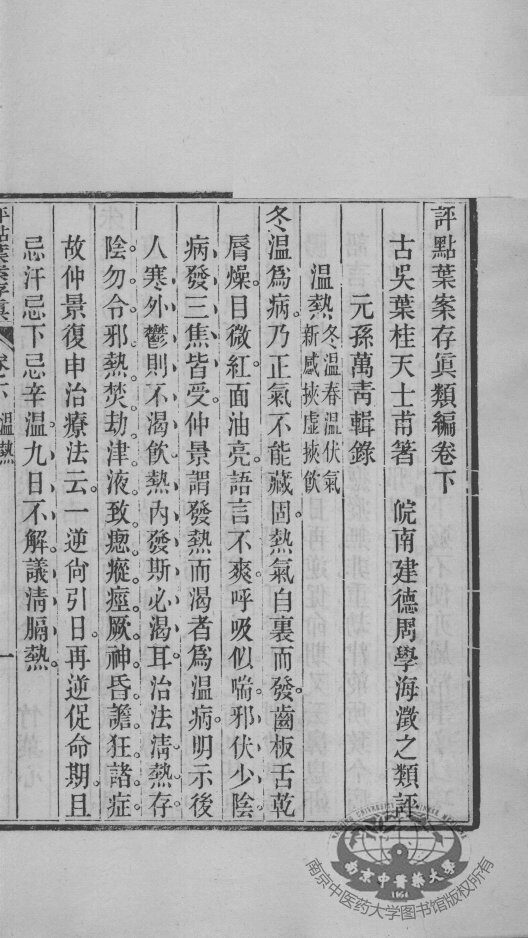 評點葉案存眞類編卷下
古吳葉桂天士甫著 皖南建德周學海澂之類評
元孫萬靑輯錄
溫熱 冬溫春溫伏氣
新感挾虛挾飲
冬溫爲病。乃正氣不能藏固。熱氣自裏而發。齒板舌乾
脣燥。目微紅。面油亮。語言不爽。呼吸似喘。邪伏少陰。
病發三焦皆受。仲景謂發熱而渴者爲溫病。明示後
人寒外鬱則不渴飲。熱內發斯必渴耳。治法淸熱存
陰。勿令邪熱焚劫津液。致瘛瘲痙厥神昏譫狂諸症
故仲景復申治療法云。一逆尙引日。再逆促命期。且
忌汗忌下忌辛溫。九日不解。議淸膈熱。
評點葉案存眞 卷下 溫熱 一
南京中醫藥大學
1954
南京中医药大学图书馆版权所有